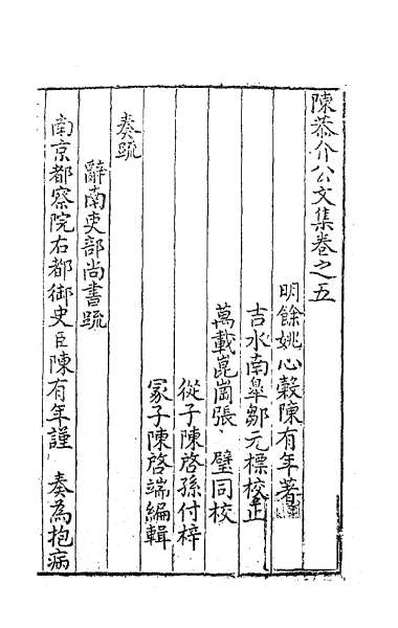 陳恭介公文集卷之五
明餘姚心穀陳有年著
吉水南臯鄒元標校正
萬載崑崗張璧同校
從子陳啓孫付梓
冢子陳啓端編輯
奏疏
辭南吏部尚書疏
南京都察院右都御史臣陳有年謹奏為抱病